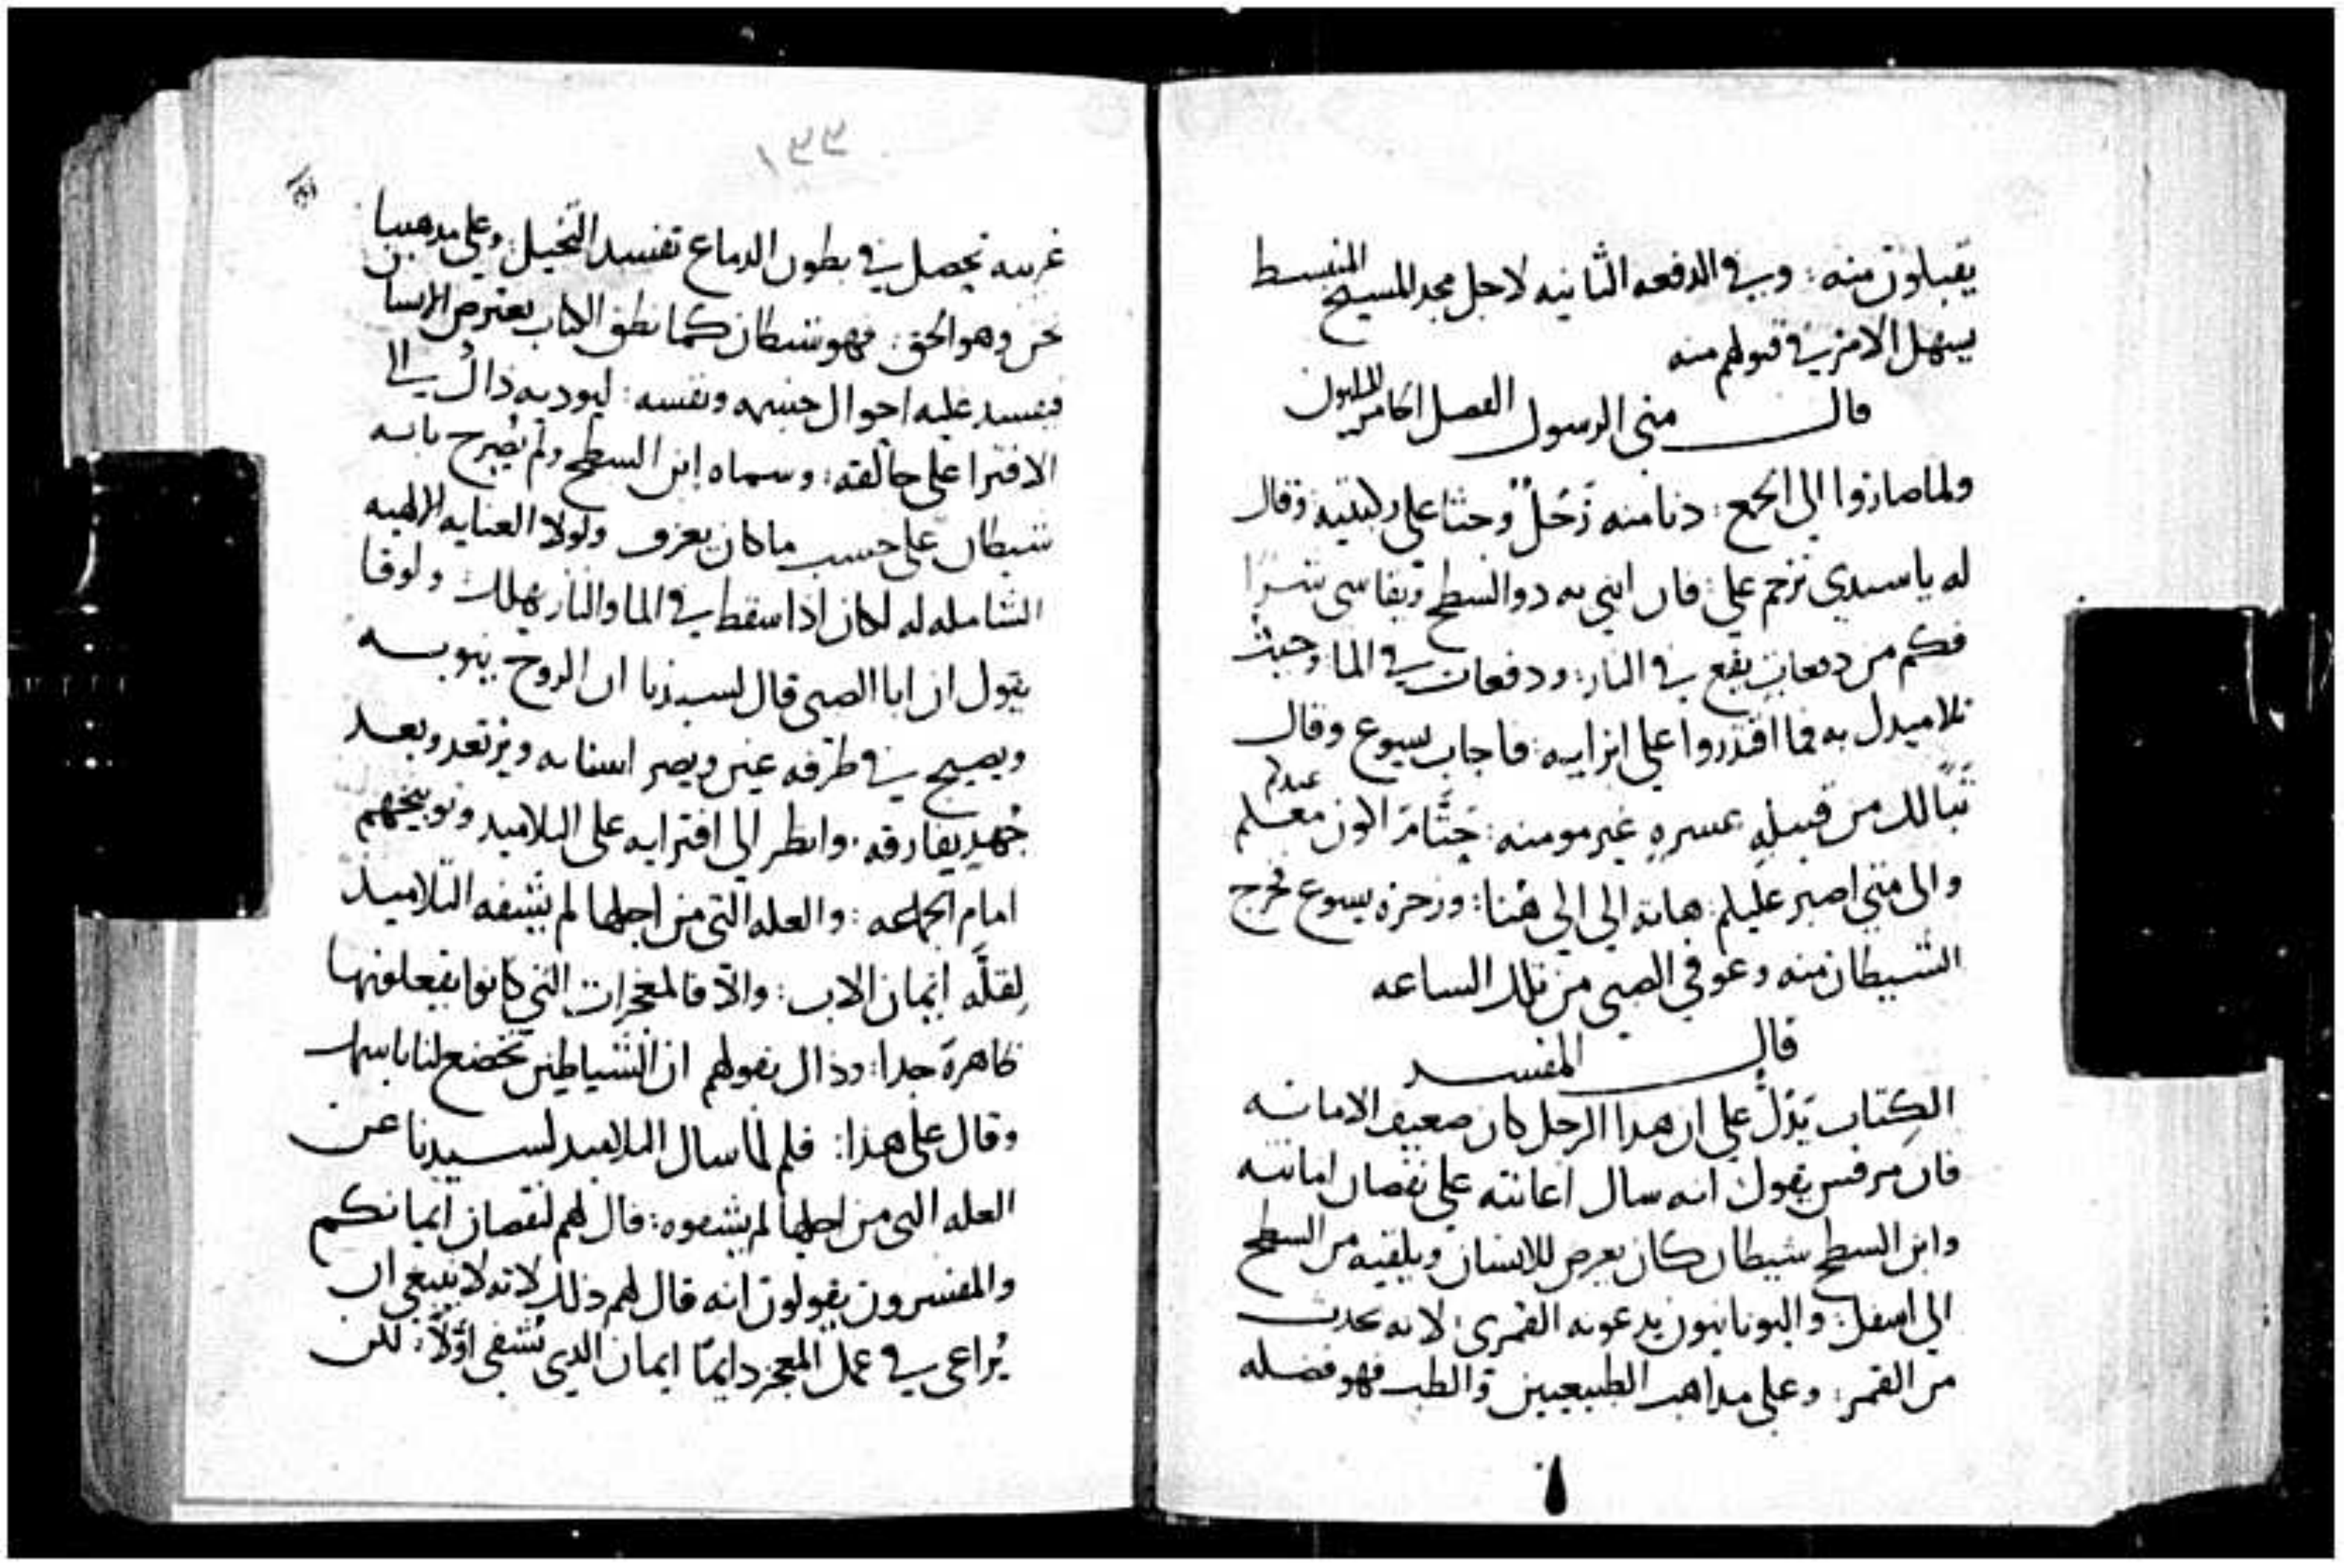 يقبلون منه : وفي الدفعه الثانيه لاجل مجد المسيح المنبسط
يسهل الامر في قبولهم منه
قال متى الرسول الفصل
ولما صاروا الى الجمع : دنا منه رَجُلٌ وجثا على ركبتيه وقال
له يا سيدي ترحم علي : فان ابني به دو السطح ويقاسي شرًا
فكم من دفعات يقع في النار : ودفعات في الما وجيت
تلاميدك به فما اقتدروا على ابرايه : فاجاب يسوع وقال
تبًا لك من قبيلهِ عسرهِ غير مومنه : حَتَّامَ اكون معكم عندكم
والى متى اصبر عليكم : هاته الي الى هُنا : وزجره يسوع فخرج
الشيطان منه وعوفي الصبي من تلك الساعه
قال المفسر
الكِتاب يَدُلّ على ان هدا الرجل كان ضعيف الامانه
فان مرقس يقول انه سال اعانته على نقصان امانته
وابن السطح شيطان كان يعرض للانسان ويلقيه من السطح
الى اسفل : واليونانيون يدعونه القمري : لانه يحدث
من القمر : وعلى مداهب الطبيعيين والطب فهو فضله
١٣٣
غريبه تحصل في بطون الدماع تفسد التخيل : وعلى مدهبنا
نحن وهو الحق : فهو شيطان كما نطق الكتاب يعترض الانسان
فيفسد عليه احوال جسمه ونفسه : ليوديه ذاك الى
الافترا على خالقه : وسماه ابن السطح ولم يُصرح بانه
شيطان على حسب ما كان يعرف ولولا العنايه الالهيه
الشامله له لكان اذا سقط في الما والنار يهلك ولوقا
يقول ان ابا الصبي قال لسيدنا ان الروح ينوبه
ويصيح في طرفه عين ويصر اسنانه ويرتعد وبعد
جُهدٍ يفارقه : وانظر الى افترايه على التلاميد وتوبيخهم
امام الجماعه : والعله التي من اجلها لم يشفه التلاميد
لِقلّه ايمان الاب : والّا فالمعجزات التي كانوا يفعلونها
ظاهرة جدا : وذاك بقولهم ان الشياطين تخضع لنا باسمك
وقال على هذا : فلم لما سال التلاميد لسيدنا عن
العله التي من اجلها لم يشفوه : قال لهم لنقصان ايمانكم
والمفسرون يقولون انه قال لهم ذلك لانه لا ينبغي ان
يُراعى في عمل المعجز دايمًا ايمان الدي يُشفى اوّلًا : لكن